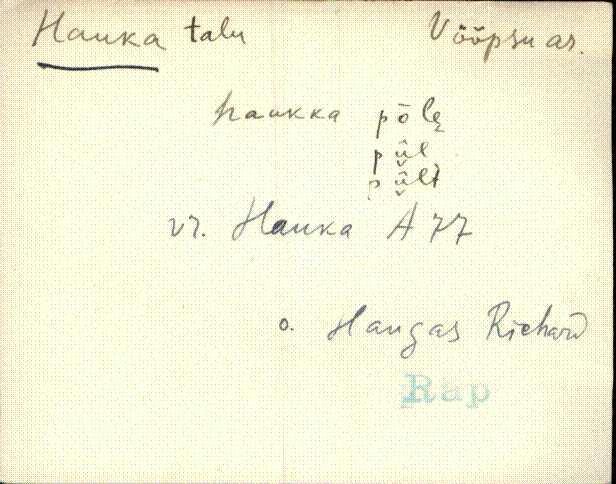 Hauka talu Vööpsu as.
haukka põlɛ
pül
pült
vr. Hauka A 77
o. Haugas Richard
Rap